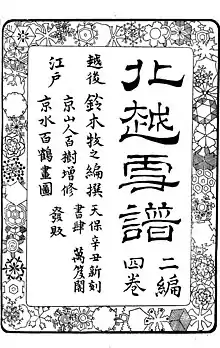 北越雪譜 二編 四巻
越後 鈴木牧之編撰 天保辛丑新刻
江戸 京山人百樹増修 書肆 萬笈閣
京水百鶴畫圖 發販